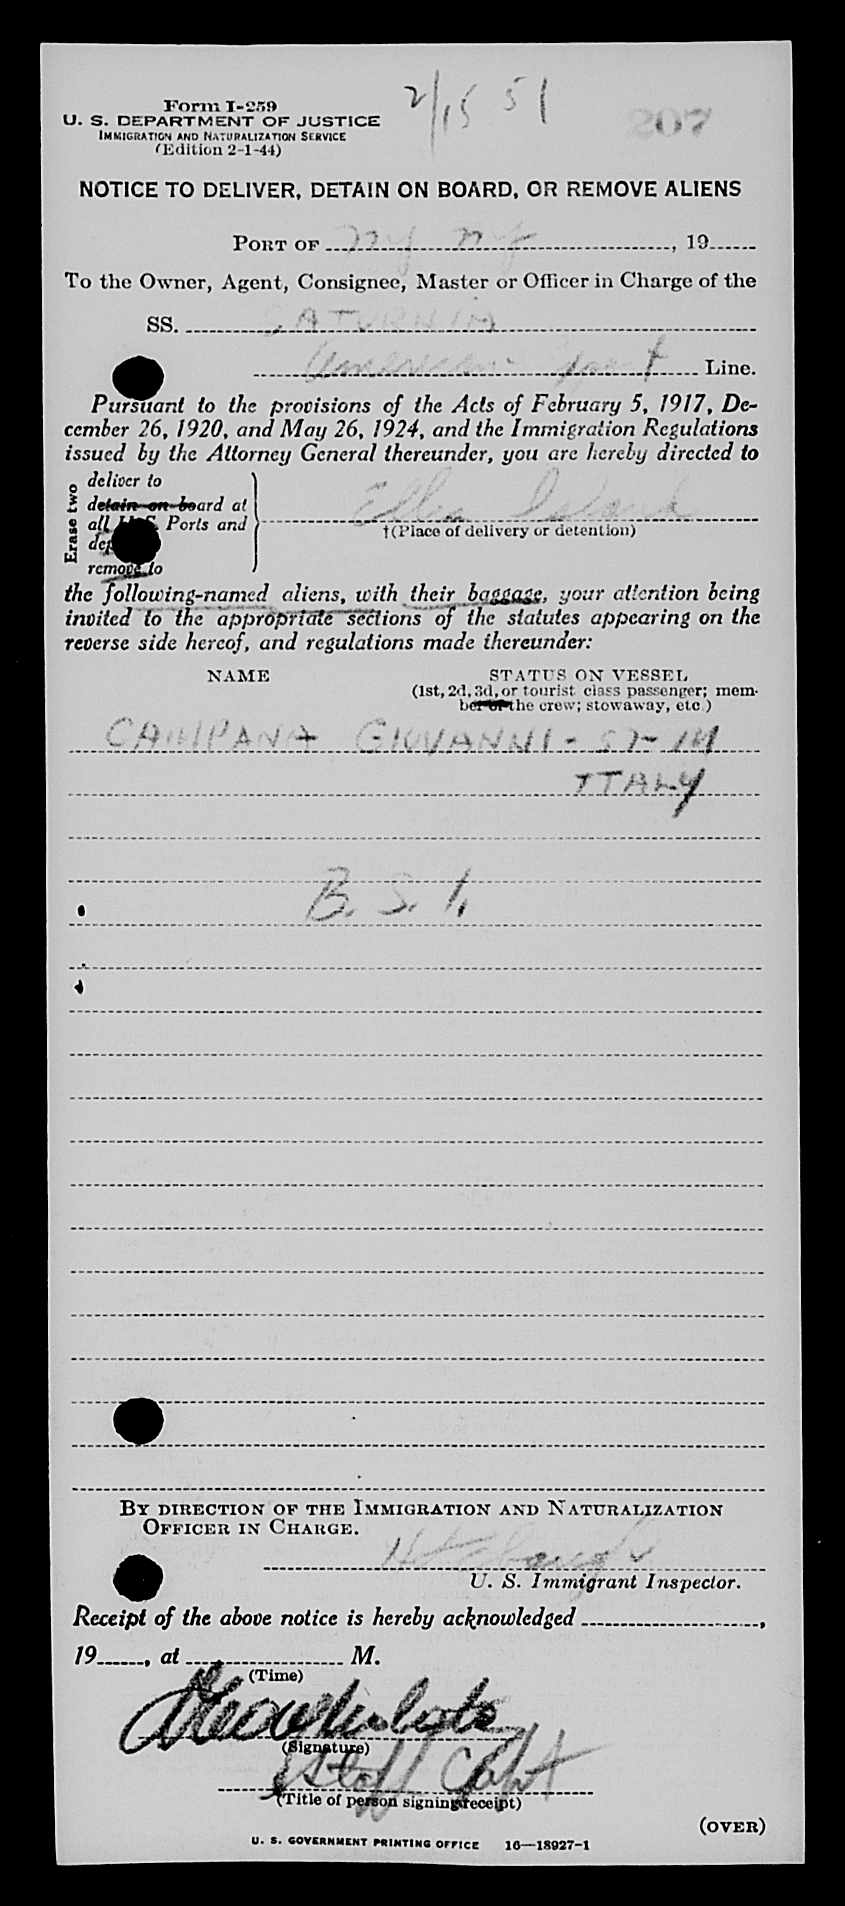 Form I-259
U. S. DEPARTMENT OF JUSTICE
IMMIGRATION AND NATURALIZATION SERVICE
(Edition 2-1-44)
2/15 51
207
NOTICE TO DELIVER, DETAIN ON BOARD, OR REMOVE ALIENS
PORT OF NY NY, 19
To the Owner, Agent, Consignee, Master or Officer in Charge of the
SS. SATURNIA
American Export Line.
Pursuant to the provisions of the Acts of February 5, 1917, De-
cember 26, 1920, and May 26, 1924, and the Immigration Regulations
issued by the Attorney General thereunder, you are hereby directed to
Erase two
deliver to
detain on board at
all U.S. Ports and
remove to
Ellis Island
†(Place of delivery or detention)
the following-named aliens, with their baggage, your attention being
invited to the appropriate sections of the statutes appearing on the
reverse side hereof, and regulations made thereunder:
NAME
STATUS ON VESSEL
(1st, 2d, 3d, or tourist class passenger; mem-
ber of the crew; stowaway, etc.)
CAMPANA GIOVANNI - 57 - M
ITALY
B. S. I.
BY DIRECTION OF THE IMMIGRATION AND NATURALIZATION
OFFICER IN CHARGE.
U. S. Immigrant Inspector.
Receipt of the above notice is hereby acknowledged ,
19 , at M.
(Time)
(Signature)
Staff Capt
(Title of person signing receipt)
(OVER)
U. S. GOVERNMENT PRINTING OFFICE 16—18927-1